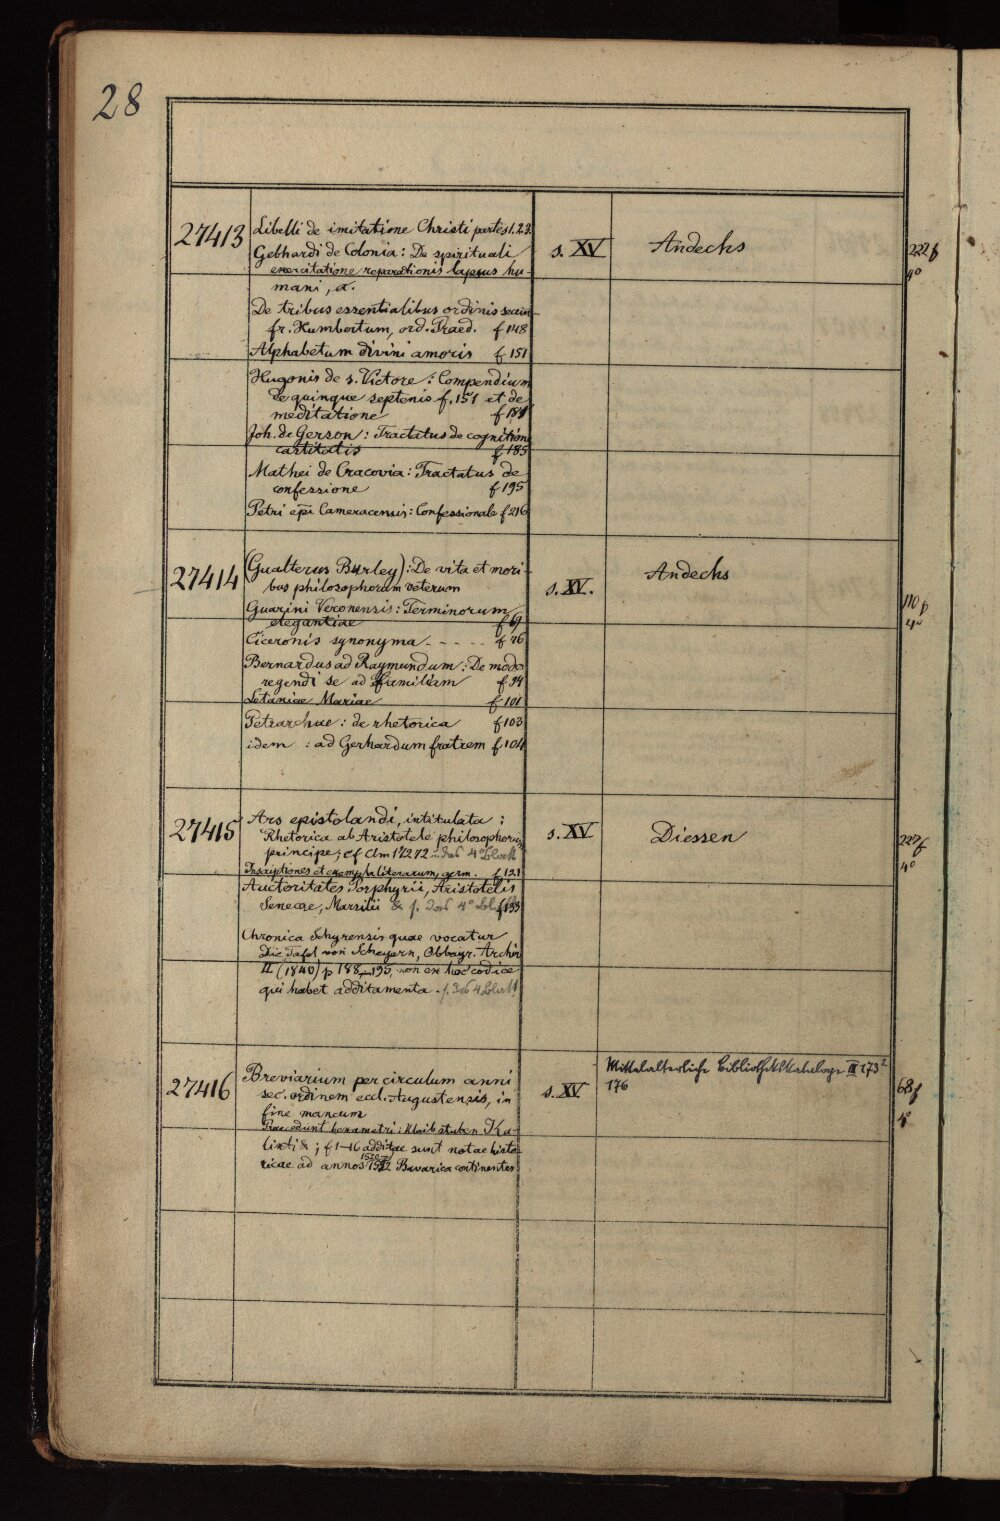 28
27413
Libelli de imitatione Christi partes 1.2.3.
Gebhardi de Colonia: De spirituali
exercitatione reparationis lapsus hu-
mani, etc.
De tribus essentialibus ordinis secun-
fr. Humbertum, ord. Praed. f 148
Alphabetum divini amoris f 151
Hugonis de s. Victore: Compendium
de quinque septenis f. 151 et de
meditatione f 181
Joh. de Gerson: Tractatus de cognitione
castitatis f 185
Mathei de Cracovia: Tractatus de
confessione f 195
Petri epi Cameracensis: Confessionale f 216
s. XV
Andechs
222 f
4°
27414
(Gualterus Burley): De vita et mori-
bus philosophorum veterum
Guarini Veronensis: Terminorum
elegantiae f 69
Ciceronis synonyma - - - - - f 76
Bernardus ad Raymundum: De modo
regendi se ad familiam f 94
Letaniae Mariae f 101
Petrarchae: de rhetorica f 103
idem : ad Gerhardum fratrem f 104
s. XV.
Andechs
110 f
4°
27415
Ars epistolandi, intitulata:
Rhetorica ab Aristotele philosophorum
principe; cf Clm 17272 4 Blatt
Inscriptiones et exempla literarum, germ. f 121
Auctoritates Porphyrii, Aristotelis
Senecae, Marsilii & f. das 4° Blatt f 133
Chronica Schyrensis quae vocatur
Die Tafel von Scheyern, Obbayr. Archiv
II (1840) p 188-195, non ex hoc codice
qui habet additamenta. f. das 4 Blatt
s. XV
Diessen
227 f
4°
27416
Breviarium per circulum anni
sec. ordinem eccl. Augustensis, in
fine mancum
Praecedunt hexametri: Ka-
lixti &; f 1-16 additae sunt notae histo-
ricae ad annos 1520-1552 Bavarica continentes
s. XV
Mittelalterliche Bibliothekskataloge III 173²
176
68 f
4°